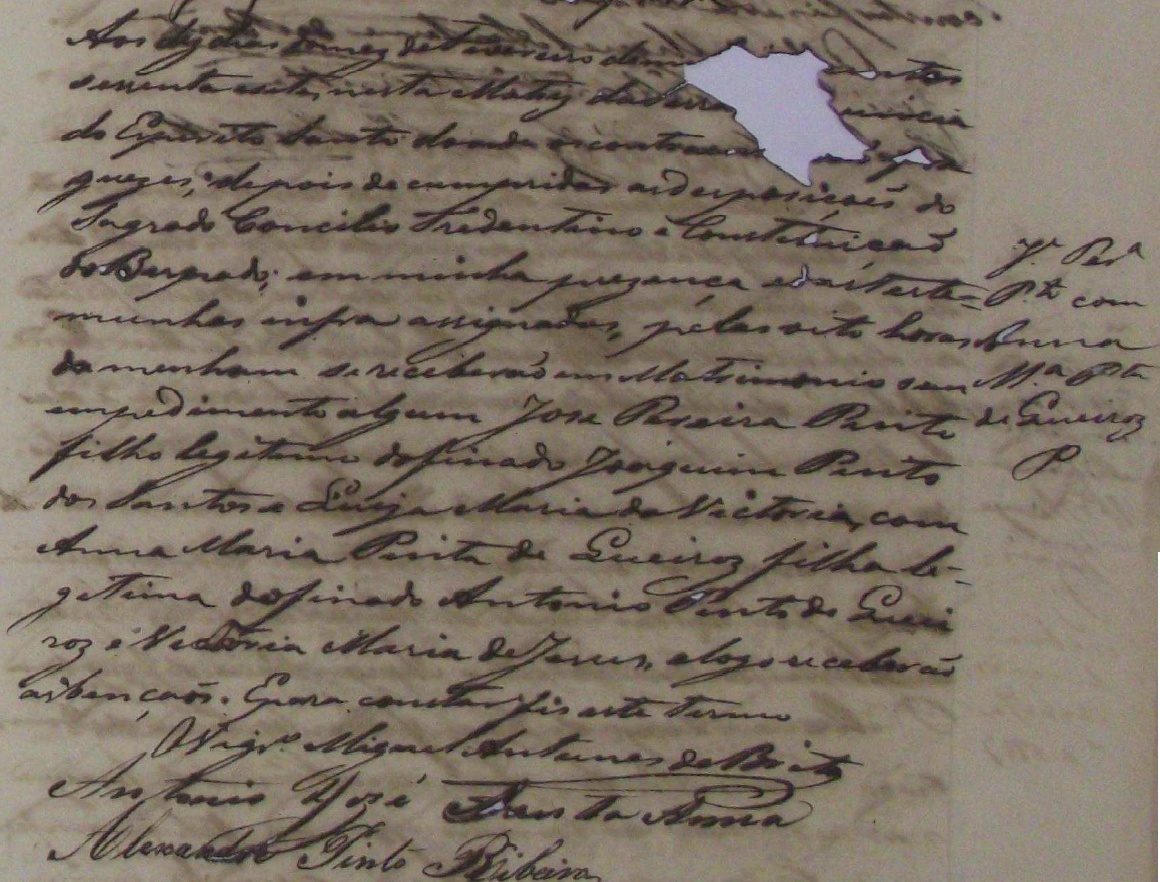 Aos dez dias do mez de Fevereiro de mil entos
sessenta e sete, nesta Matriz da Serra vincia
do Espirito Santo donde os contraentes são fre
guezes, depois de cumpridas as desposicoẽs do
Sagrado Concilio Tredentino e Constituicaõ
do Bispado, em minha prezenca e das teste=
munhas infra assignadas, pelas oito horas
da menham se receberaõ em Matrimonio sem
empedimento algum Jose Pereira Pinto
filho legitimo do finado Joaquim Pinto
dos Santos e Luiza Maria da Victoria, com
Anna Maria Pinta de Queiroz filha le-
getima do finado Antonio Pinto de Quei
roz e Victoria Maria de Jesus, e logo receberão
as bencaõs. E para constar fis este termo
O Vigrº Miguel Antunes de Brito
Antonio José Santa Anna
Alexandre Pinto Ribeiro
Jᵉ Perª
Pᵗᵒ com
Anna
Mª Pᵗᵃ
de Queiroz
P